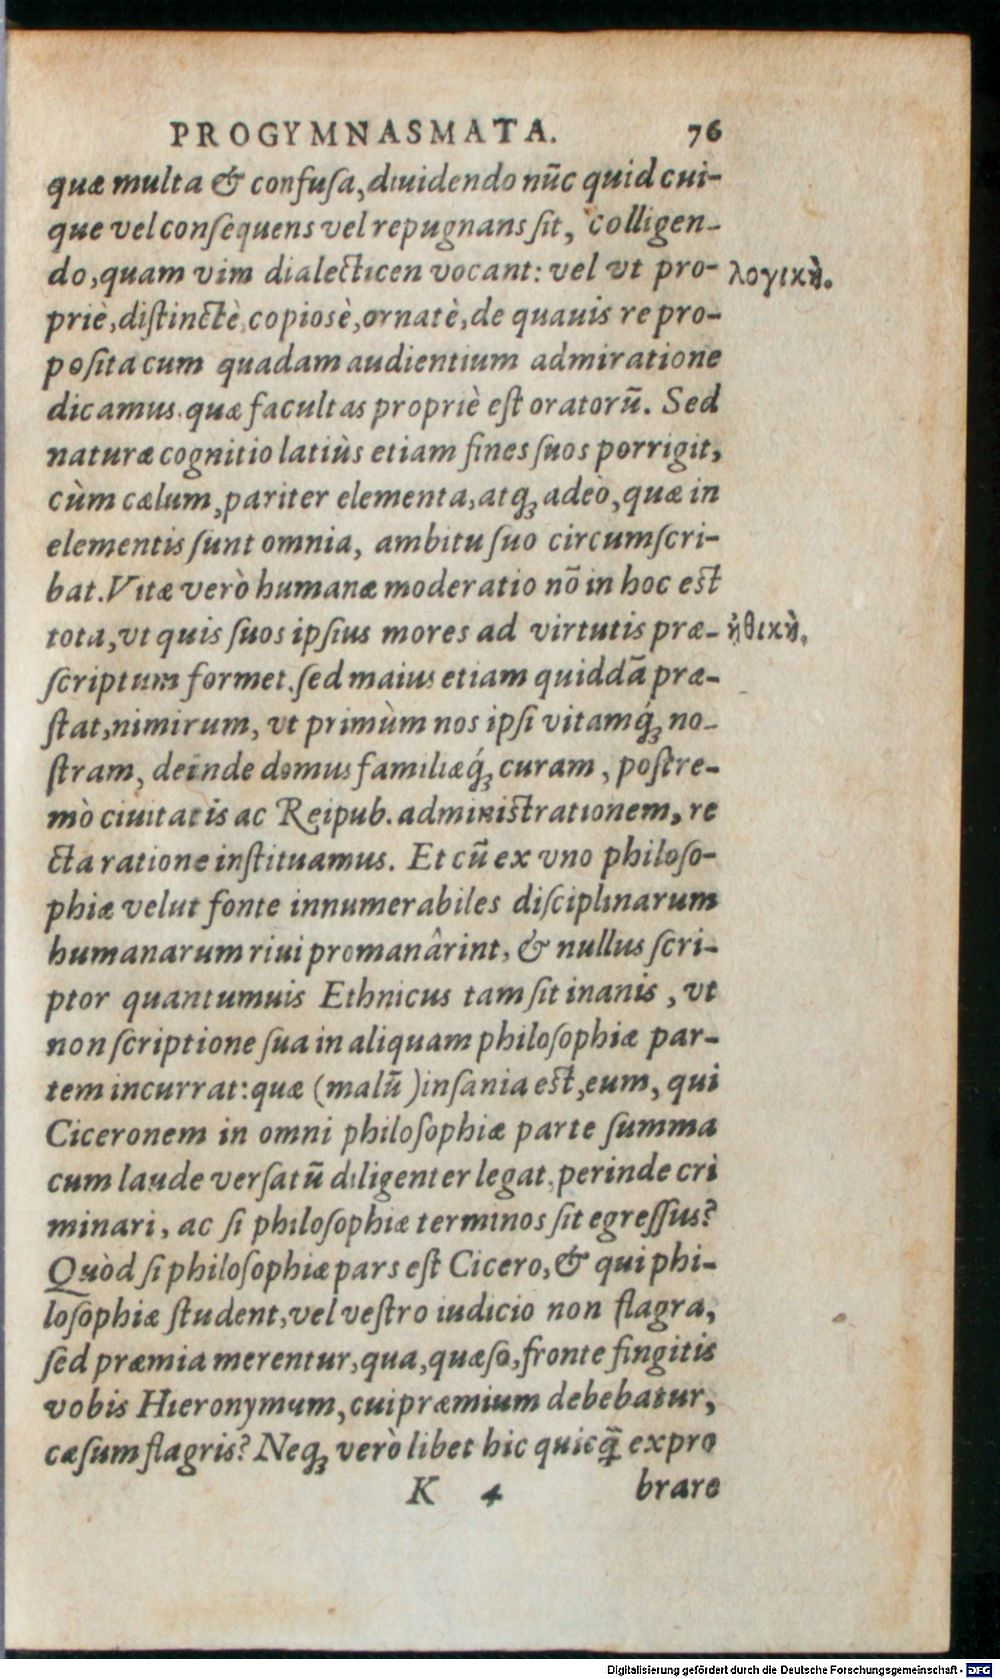 PROGYMNASMATA. 76
quæ multa & confuſa, diuidendo nūc quid cui-
que vel conſequens vel repugnans ſit, colligen-
do, quam vim dialecticen vocant: vel vt pro- λογικὴ.
priè, diſtinctè, copiosè, ornatè, de quauis re pro-
poſita cum quadam audientium admiratione
dicamus. quæ facultas propriè eſt oratorū. Sed
naturæ cognitio latiùs etiam fines ſuos porrigit,
cùm cælum, pariter elementa, atq; adeò, quæ in
elementis ſunt omnia, ambitu ſuo circumſcri-
bat. Vitæ verò humanæ moderatio nō in hoc eſt
tota, vt quis ſuos ipſius mores ad virtutis præ- ἠθικὴ.
ſcriptum formet. ſed maius etiam quiddā præ-
ſtat, nimirum, vt primùm nos ipſi vitamq́; no-
ſtram, deinde domus familiæq́; curam, poſtre-
mò ciuitatis ac Reipub. adminiſtrationem, re
cta ratione inſtituamus. Et cū ex vno philoſo-
phiæ velut fonte innumerabiles diſciplinarum
humanarum riui promanârint, & nullus ſcri-
ptor quantumuis Ethnicus tam ſit inanis, vt
non ſcriptione ſua in aliquam philoſophiæ par-
tem incurrat: quæ (malū) inſania eſt, eum, qui
Ciceronem in omni philoſophiæ parte ſumma
cum laude verſatū diligenter legat, perinde cri
minari, ac ſi philoſophiæ terminos ſit egreſſus?
Quòd ſi philoſophiæ pars eſt Cicero, & qui phi-
loſophiæ ſtudent, vel veſtro iudicio non flagra,
ſed præmia merentur, qua, quæſo, fronte fingitis
vobis Hieronymum, cui præmium debebatur,
cæſum flagris? Neq; verò libet hic quicq̄ expro
K 4 brare
Digitalisierung gefördert durch die Deutsche Forschungsgemeinschaft - DFG